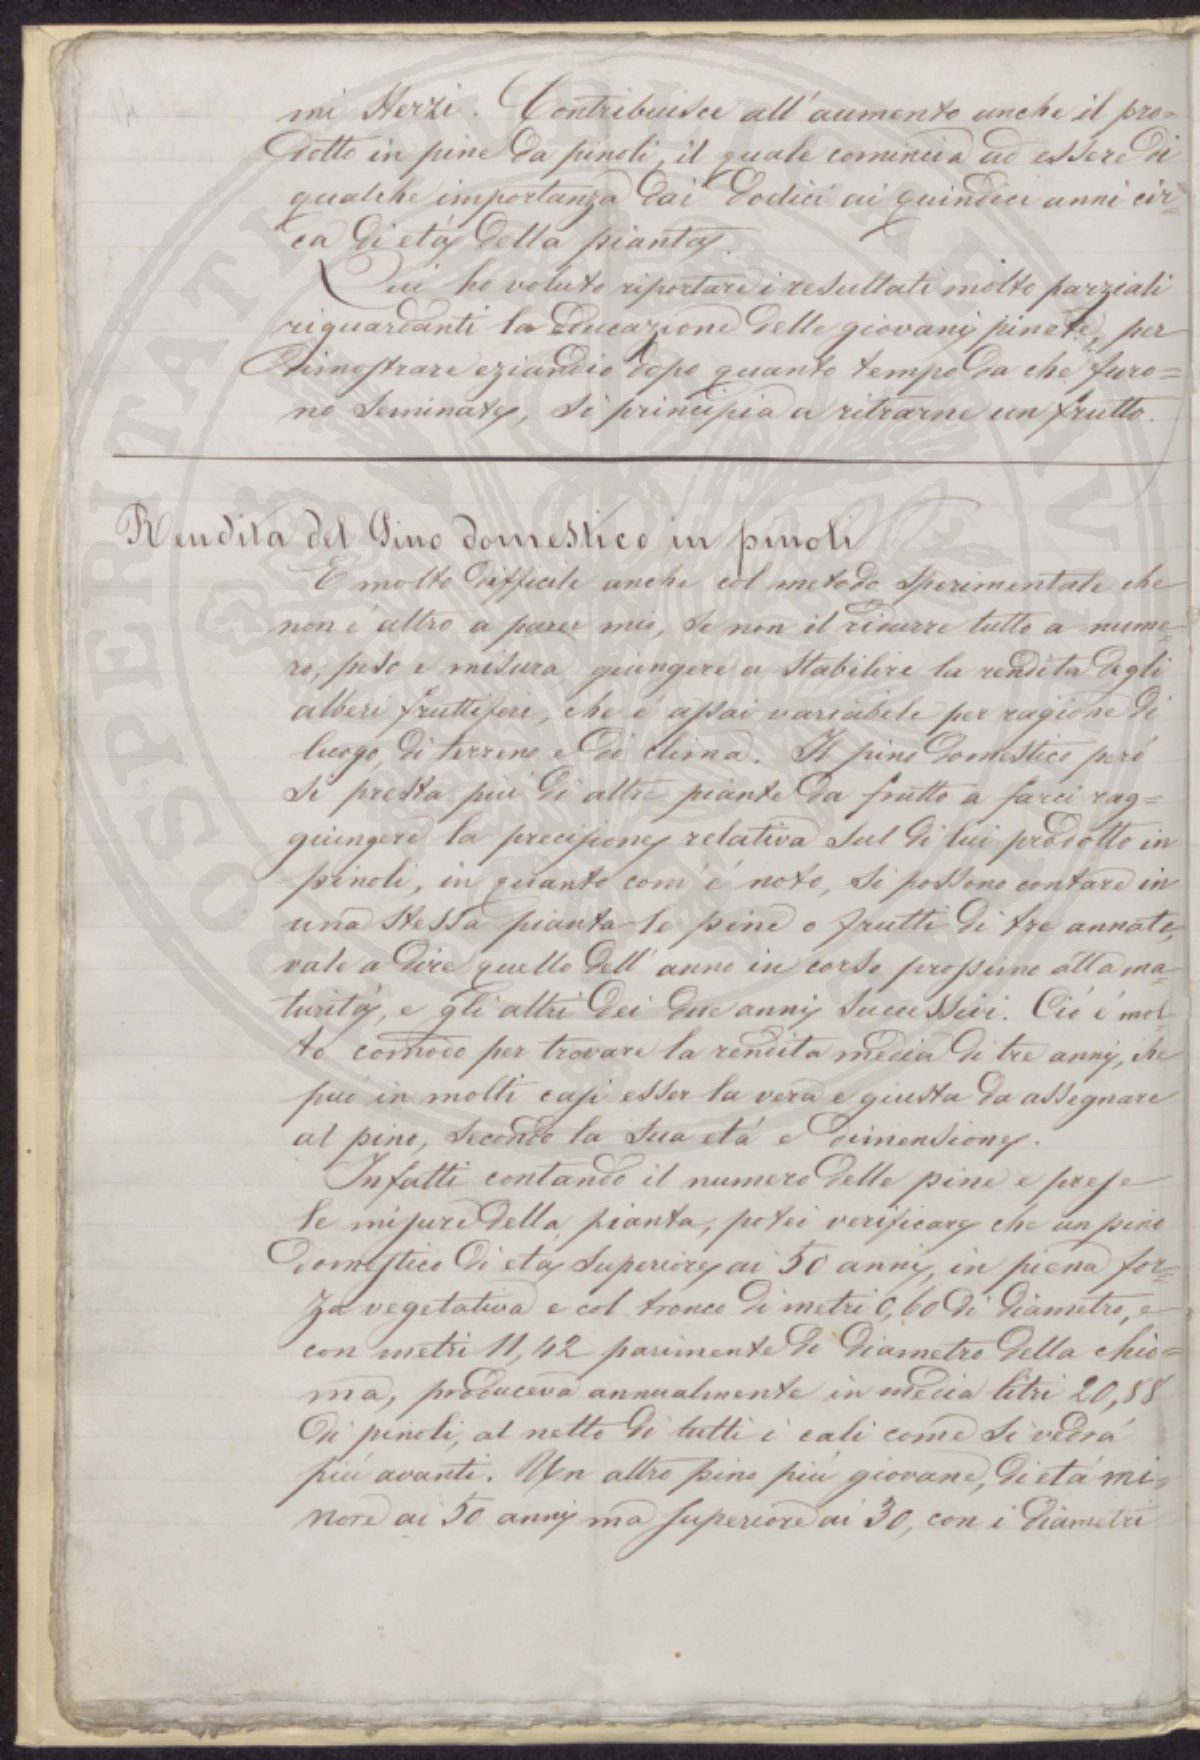 mi sterzi. Contribuisce all'aumento anche il pro=
dotto in pine da pinoli, il quale comincia ad essere di
qualche importanza dai dodici ai quindici anni cir=
ca di età della pianta.
Qui ho voluto riportare i resultati molto parziali
riguardanti la educazione delle giovani pinete, per
dimostrare eziandio dopo quanto tempo da che furo=
no seminate, si principia a ritrarne un frutto.
Rendita del Pino domestico in pinoli
È molto difficile anche col metodo sperimentale che
non è altro a parer mio, se non il ridurre tutto a nume=
ro, peso e misura, giungere a stabilire la rendita degli
alberi fruttiferi, che è assai variabile per ragione di
luogo, di terreno e di clima. Il pino domestico però
si presta più di altre piante da frutto a farci rag=
giungere la precisione relativa sul di lui prodotto in
pinoli, in quanto com'è noto, si possono contare in
una stessa pianta le pine o frutti di tre annate,
vale a dire quello dell'anno in corso prossimo alla ma=
turità, e gli altri dei due anni successivi. Ciò è mol=
to comodo per trovare la rendita media di tre anni, che
può in molti casi esser la vera e giusta da assegnare
al pino, secondo la sua età e dimensione.
Infatti contando il numero delle pine e prese
le misure della pianta, potei verificare che un pino
domestico di età superiore ai 50 anni, in piena for=
za vegetativa e col tronco di metri 0,60 di diametro, e
con metri 11,42 parimente di diametro della chio=
ma, produceva annualmente in media litri 20,88
di pinoli, al netto di tutti i cali come si vedrà
più avanti. Un altro pino più giovane, di età mi=
nore ai 50 anni ma superiore ai 30, con i diametri